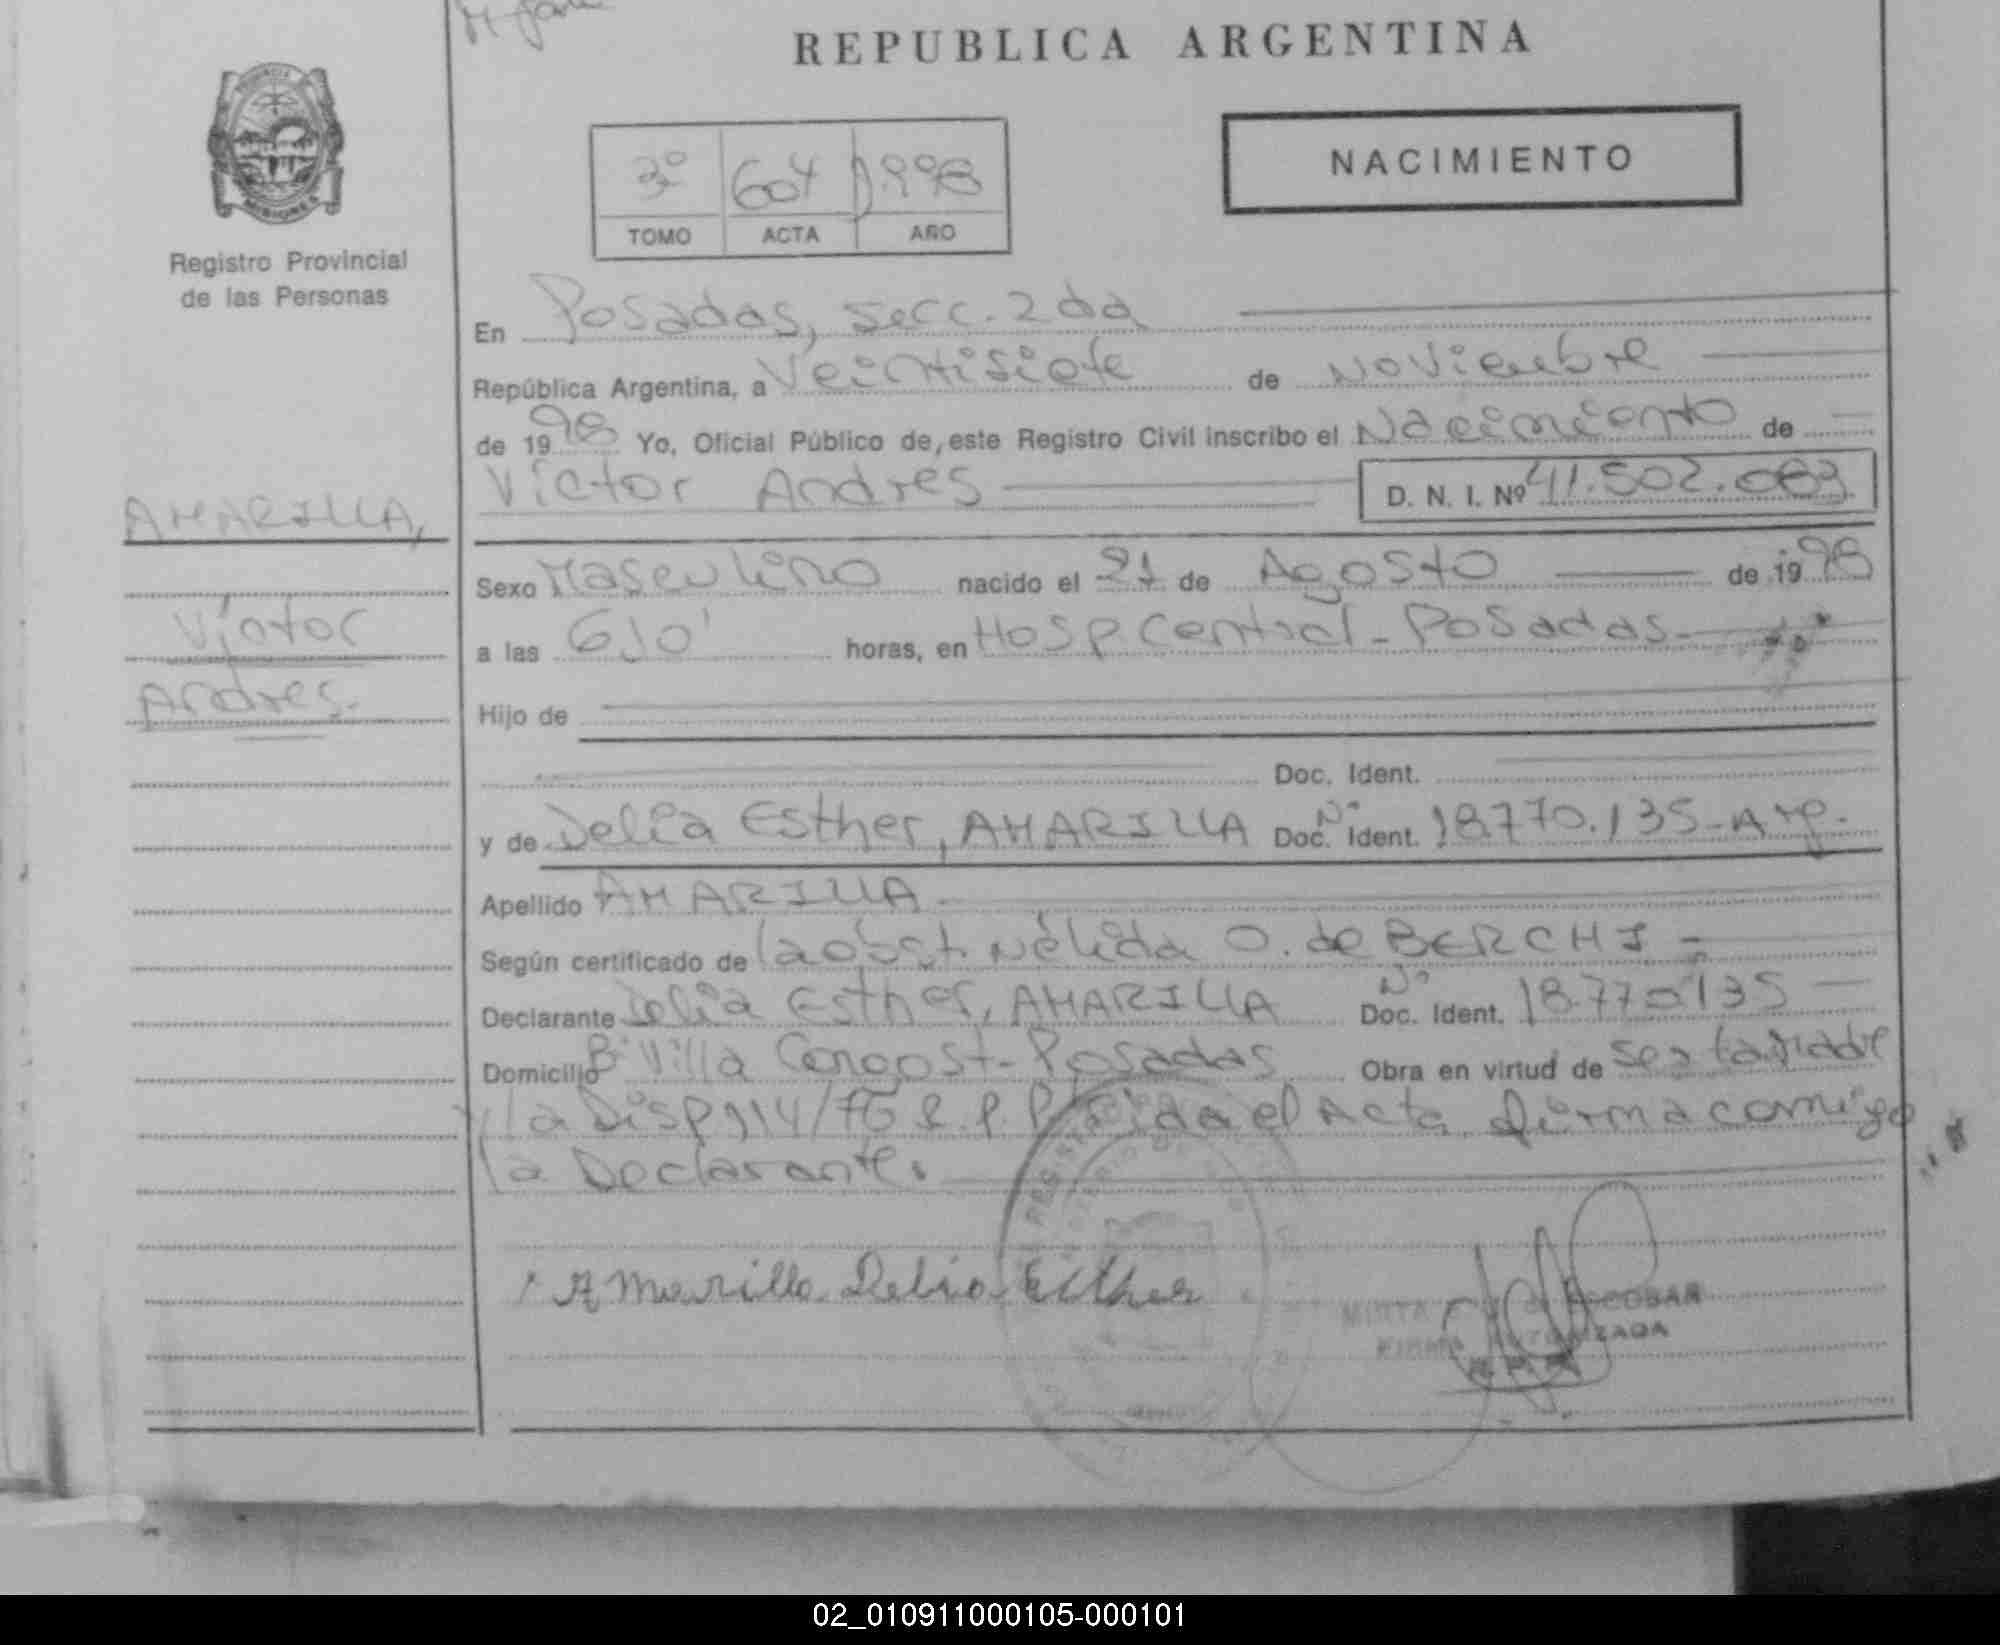 REPUBLICA ARGENTINA
PROVINCIA
MISIONES
Registro Provincial
de las Personas
3º 604 1998
TOMO ACTA AÑO
NACIMIENTO
En Posadas, secc. 2da
República Argentina, a Veintisiete de Noviembre
de 1998 Yo, Oficial Público de este Registro Civil inscribo el Nacimiento de
Víctor Andres D. N. I. Nº 41.502.083
AMARILLA,
Víctor
Andres.
Sexo Masculino nacido el 21 de Agosto de 1998
a las 6 10' horas, en Hosp Central - Posadas
Hijo de
Doc. Ident.
y de Delia Esther, AMARILLA Doc. Ident. Nº 18.770.135 - Arg.
Apellido AMARILLA
Según certificado de la obst. Nélida O. de BERCHI
Declarante Delia Esther, AMARILLA Doc. Ident. Nº 18.770.135
Domicilio Bº Villa - Posadas Obra en virtud de ser la Madre
y la Disp 114/76 R.P.P. el Acta firma comigo
la Declarante.
Amarilla Delia Esther
MIRTA ESCOBAR
FIRMA AUTORIZADA
R.P.P.
02_010911000105-000101